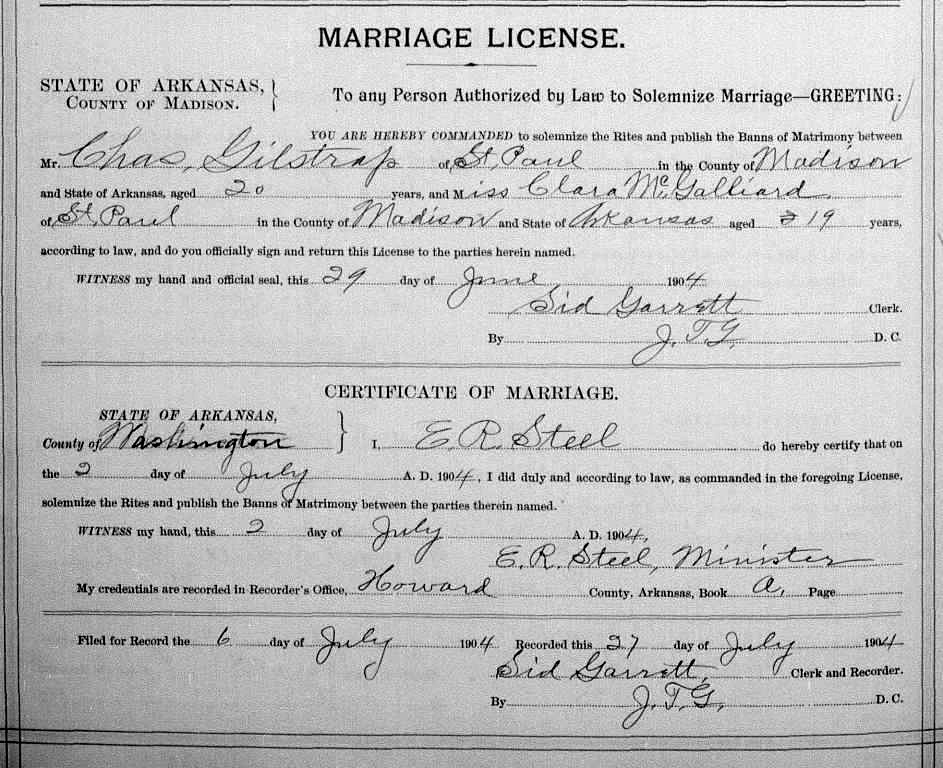 MARRIAGE LICENSE.
STATE OF ARKANSAS,
COUNTY OF MADISON.
To any Person Authorized by Law to Solemnize Marriage—GREETING:
YOU ARE HEREBY COMMANDED to solemnize the Rites and publish the Banns of Matrimony between
Mr. Chas, Gilstrap of St. Paul in the County of Madison
and State of Arkansas, aged 20 years, and Miss Clara McGalliard
of St. Paul in the County of Madison and State of Arkansas aged 19 years,
according to law, and do you officially sign and return this License to the parties herein named.
WITNESS my hand and official seal, this 29 day of June 1904
Sid Garrett Clerk.
By J. T. G. D. C.
CERTIFICATE OF MARRIAGE.
STATE OF ARKANSAS,
County of Washington I, E. R. Steel do hereby certify that on
the 2 day of July A. D. 1904, I did duly and according to law, as commanded in the foregoing License,
solemnize the Rites and publish the Banns of Matrimony between the parties therein named.
WITNESS my hand, this 2 day of July A. D. 1904,
E. R. Steel, Minister
My credentials are recorded in Recorder's Office, Howard County, Arkansas, Book A, Page
Filed for Record the 6 day of July 1904 Recorded this 27 day of July 1904
Sid Garrett, Clerk and Recorder.
By J. T. G. D. C.